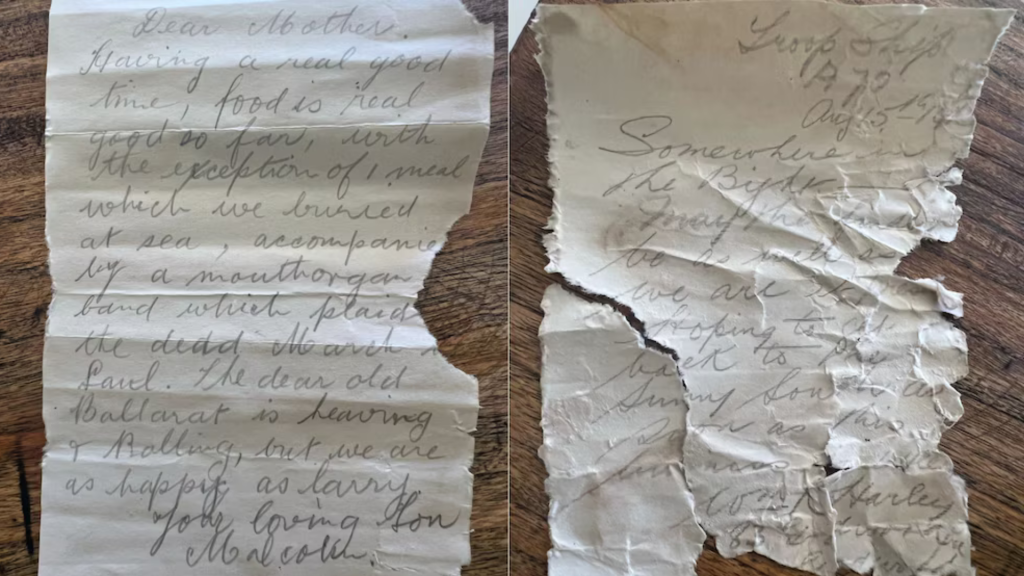 Dear Mother.
Having a real good
time, food is real
good so far, with
the exception of 1 meal
which we buried
at sea, accompanie
by a mouthorgan
band which plaid
the dead March
Saul. The dear old
Ballarat is heaving
& Rolling, but we are
as happy as larry.
Your loving Son
Malcolm.
Troop Ship
A 70
Aug 15-19
Somewhere in
the Bight
be as well as
we are
Hoping to
back to
Sunny
soon as this
Harley